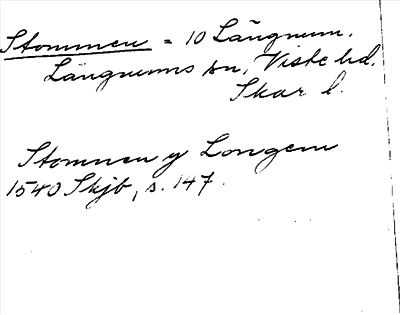 Stommen = 10 Längnum.
Längnums sn, Viste hd.
Skar l.
Stomnen y Longem
1540 Skjb, s. 147.